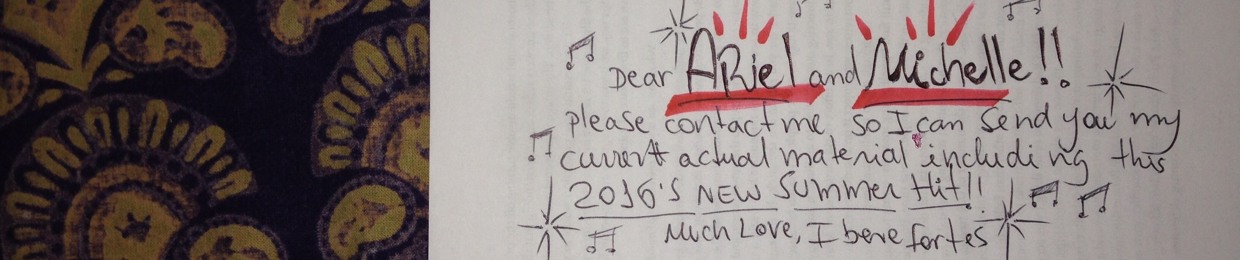 Dear ARiel and Michelle!!
please contact me, so I can send you my
current actual material including this
2016'S NEW SUMMER Hit!!
Much Love, I bere fortes